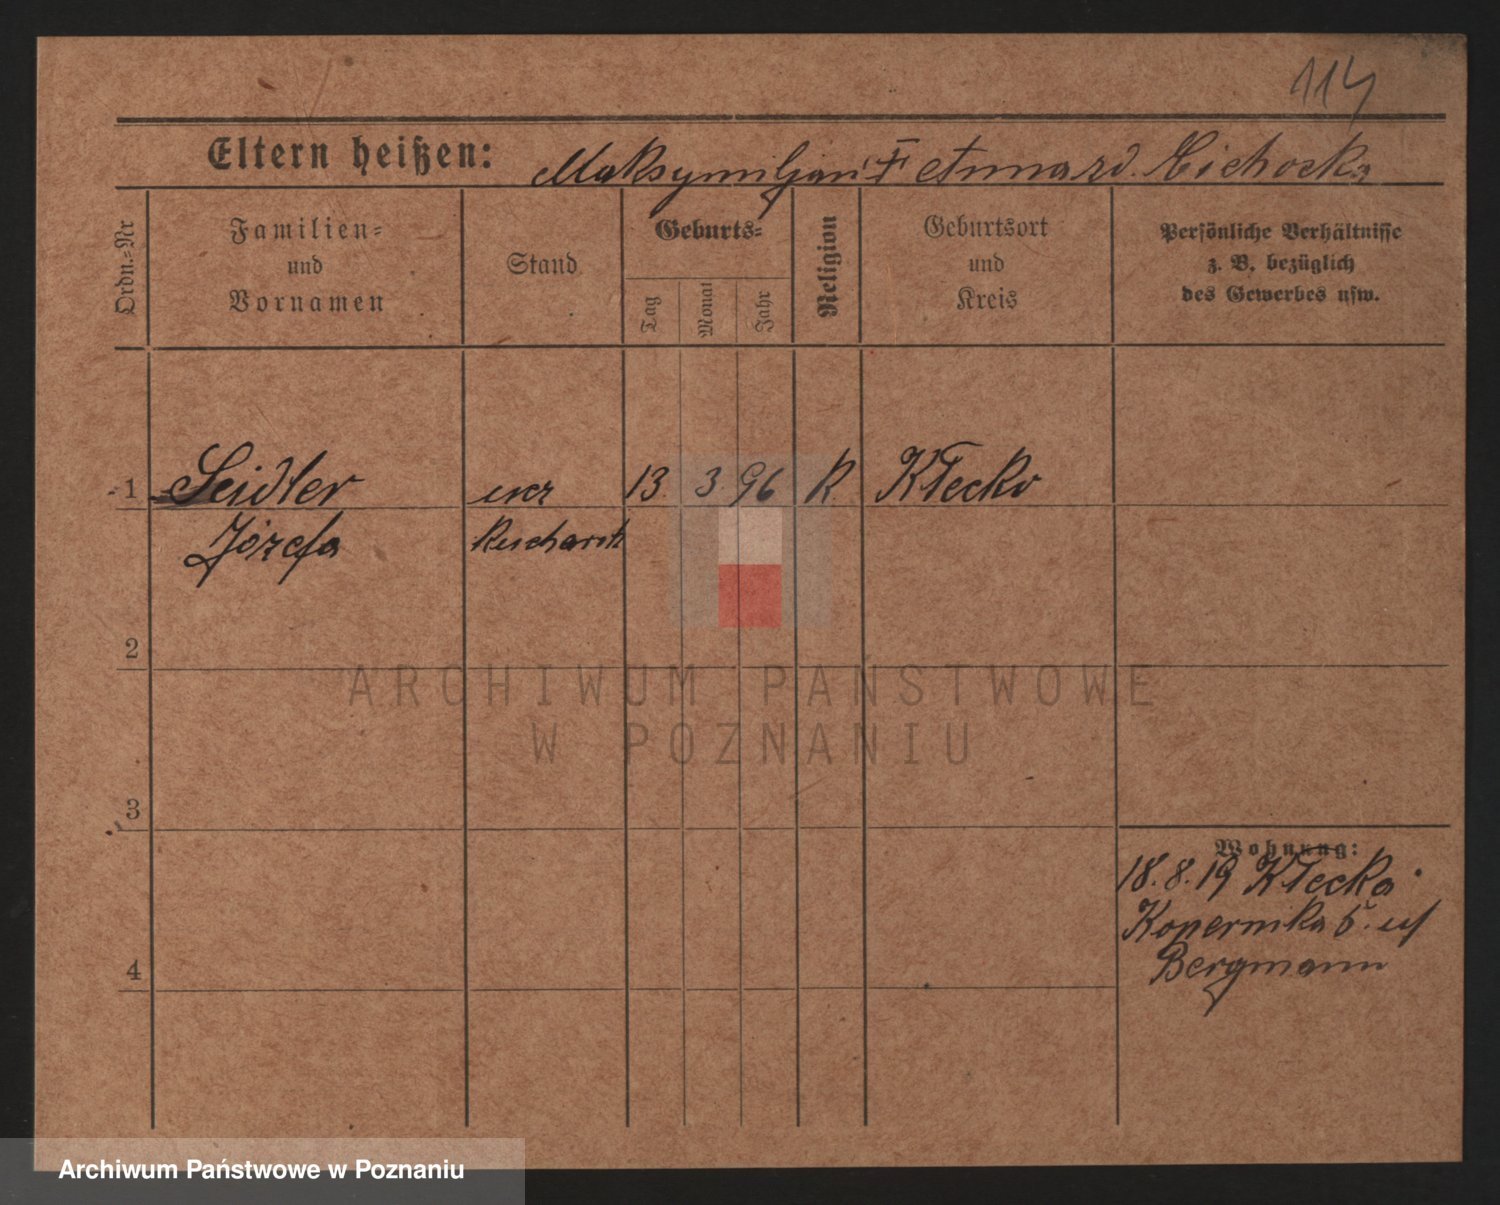 114
Eltern heißen: Maksymiljan Cichocka
Ordn.-Nr
Familien-
und
Vornamen
Stand
Geburts-
Tag
Monat
Jahr
Religion
Geburtsort
und
Kreis
Persönliche Verhältnisse
z. B. bezüglich
des Gewerbes usw.
1 Seidler ucz 13. 3. 96 K. Kłecko
Józefa
2
3
4
Wohnung:
18. 8. 19 Kłecka
Kopernika 5.
Bergmann
ARCHIWUM PAŃSTWOWE
W POZNANIU
Archiwum Państwowe w Poznaniu